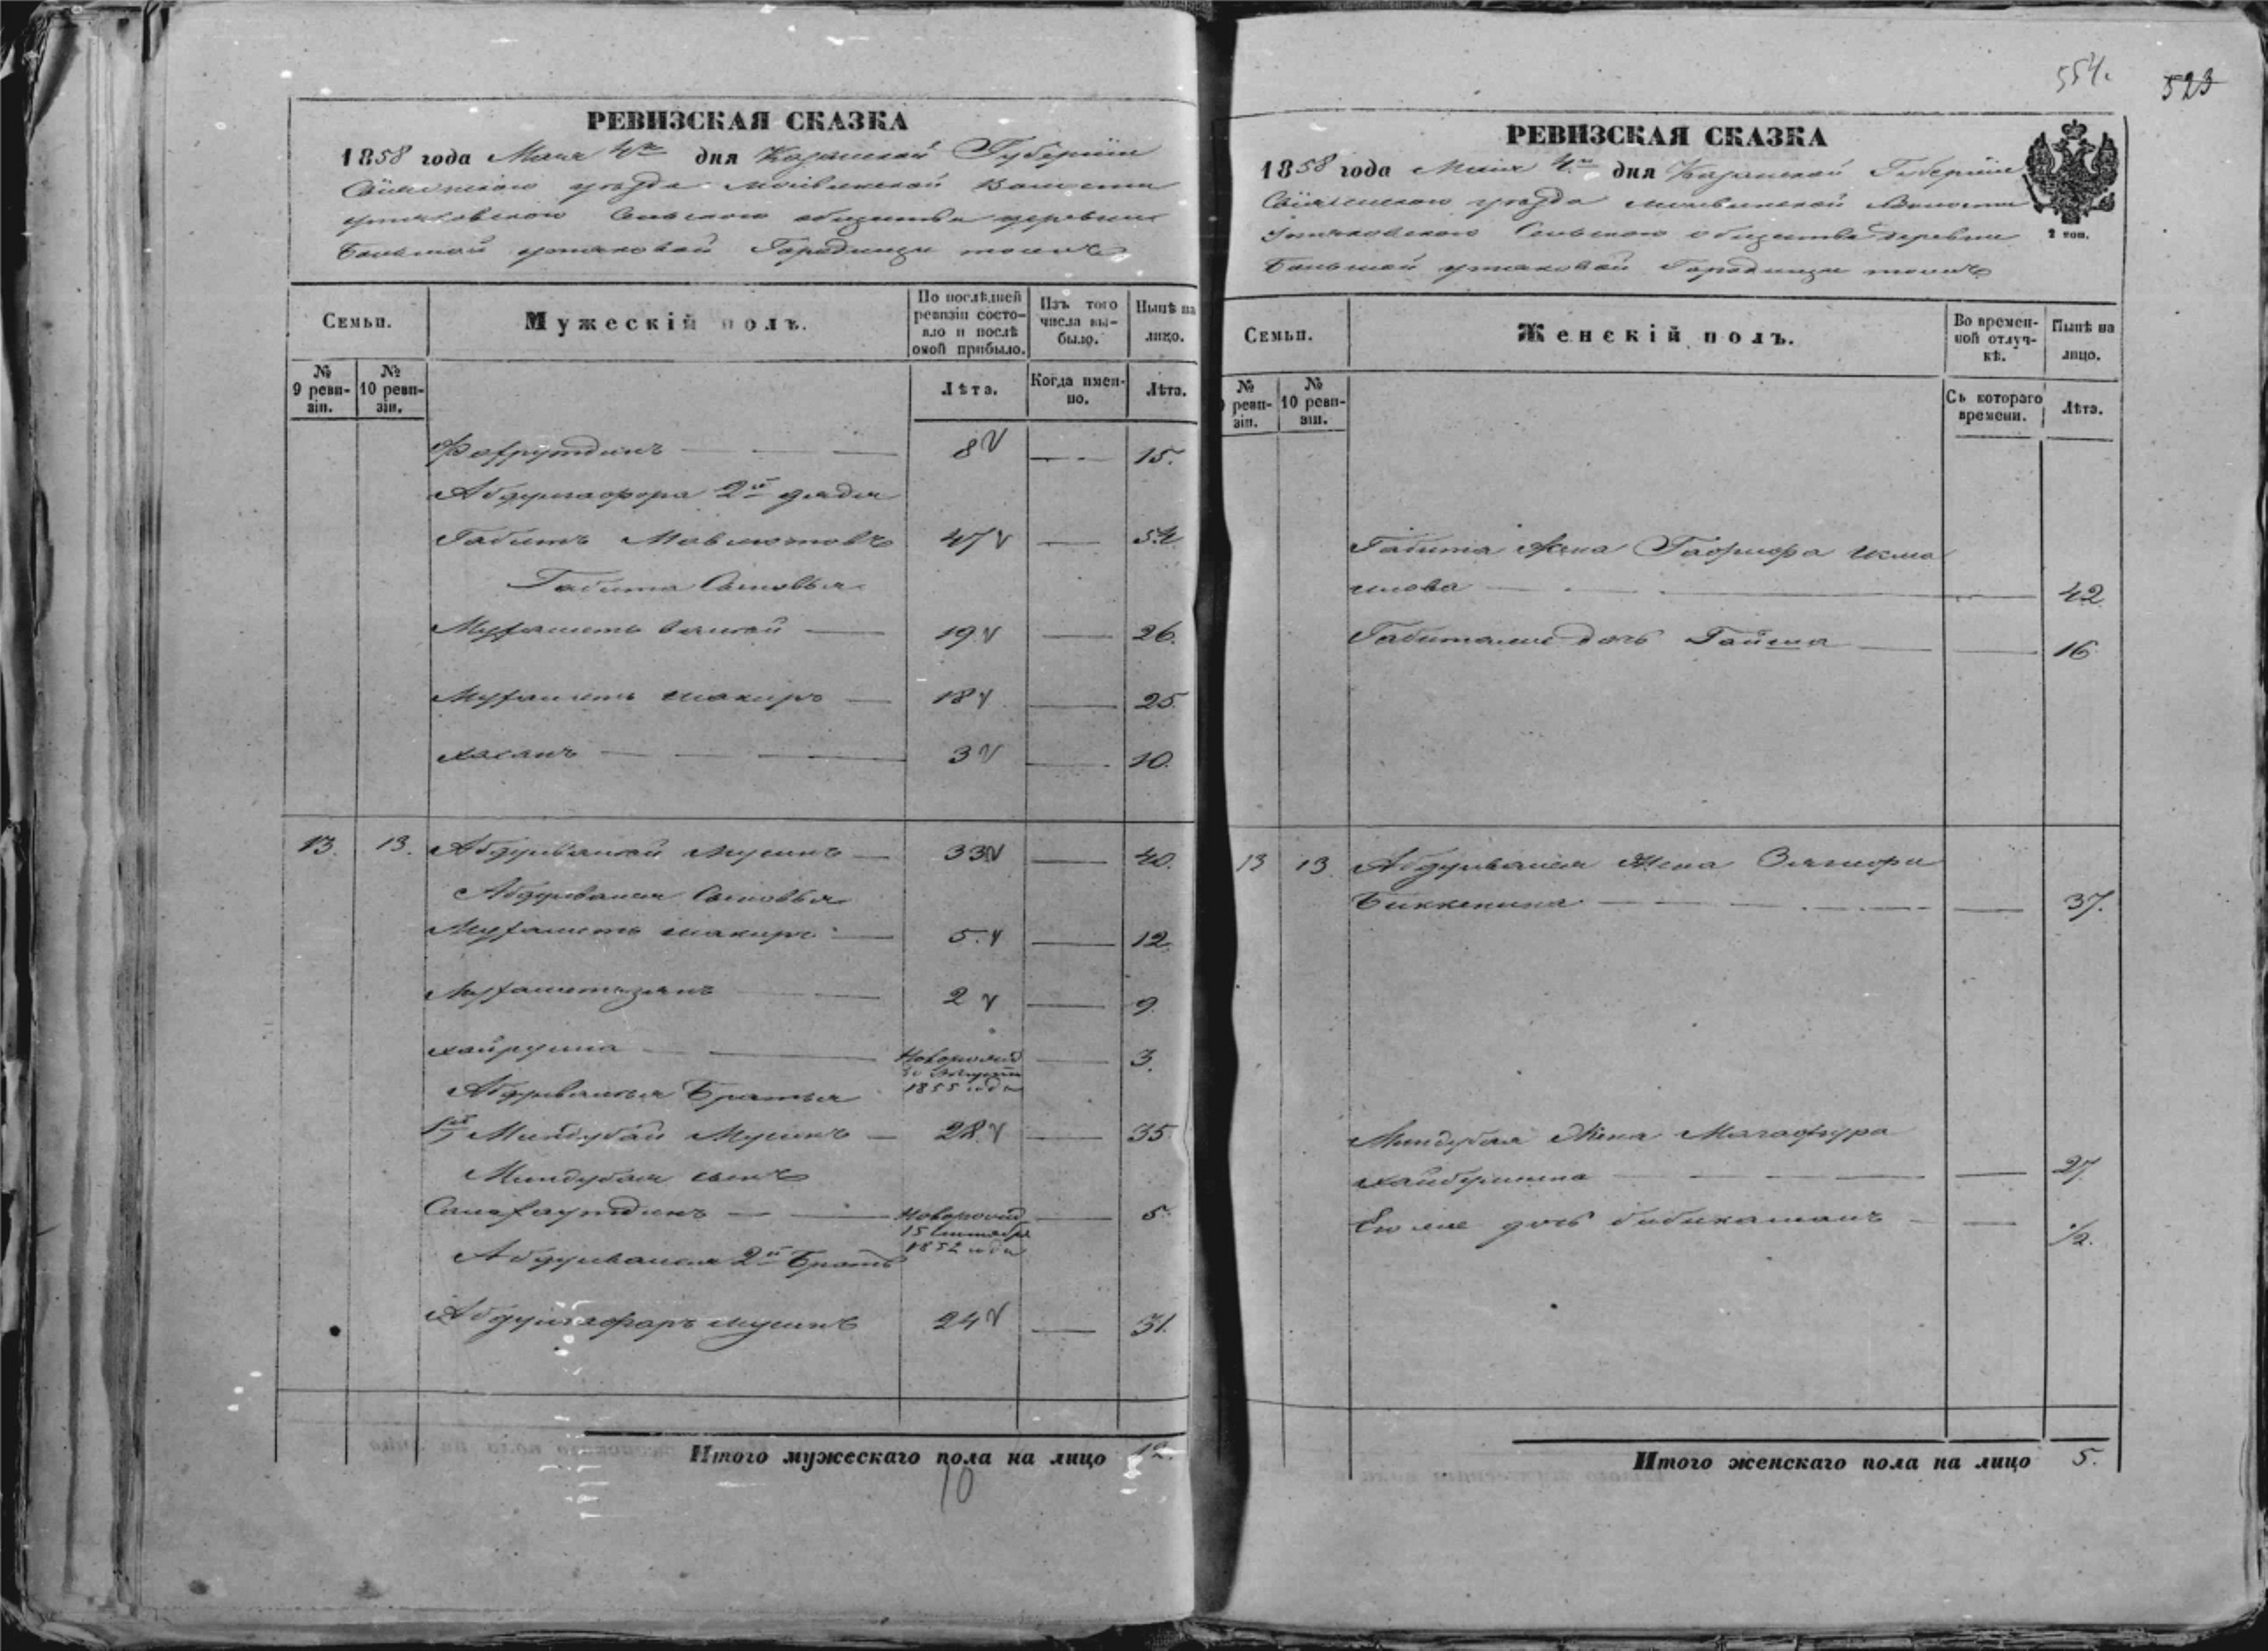 РЕВИЗСКАЯ СКАЗКА
1858 года Мая 4го дня Казанской Губернии
уезда Волости
Сельского общества деревни
Большой Городищи тожъ
Семьи.
Мужескій полъ.
По послѣдней ревизіи состояло и послѣ оной прибыло.
Изъ того числа выбыло.
Нынѣ на лицо.
№ 9 ревизіи.
№ 10 ревизіи.
Лѣта.
Когда именно.
Лѣта.
Фахрутдинъ 8 15.
2й дядя
Габитъ Мавлютовъ 47 54
Габита Сыновья
Мухаметь Валей 19 26.
Мухаметь шакиръ 18 25.
хасанъ 3 10.
13. 13. Абдулвалей Мусинъ 33 40.
Абдулвалея Сыновья
Мухаметь шакиръ 5 12
Мухаметьзянъ 2 9
хайрулла Новорожд 3.
1855 года
Абдулвалея Братья
1й Миндубай Мусинъ 28 35
Миндубая сынъ
Салахаутдинъ Новорожд 5
15 Сентября
1852 года
Абдулвалея 2й Братъ
Абдулгафаръ мусинъ 24 31.
Итого мужескаго пола на лицо 12.
10
554.
523
РЕВИЗСКАЯ СКАЗКА
1858 года Мая 4го дня Казанской Губернии
уезда Волости
Сельского общества деревни
2 коп.
Большой Городищи тожъ
Семьи.
Женскій полъ.
Во временной отлучкѣ.
Нынѣ на лицо.
ревизіи.
№ 10 ревизіи.
Съ котораго времени.
Лѣта.
Габита Жена
42
Габита дочь Гайша 16
13 13. Абдулвалея Жена
Биккенина 37.
Миндубая Жена Магафура
хайбуллина 27
Ею же дочь бибикамалъ 1/2.
Итого женскаго пола на лицо 5.